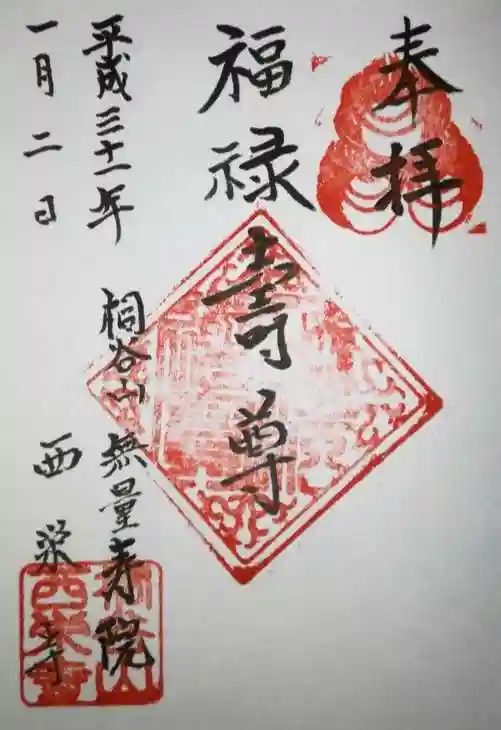 奉拝
福禄壽尊
平成三十一年
一月二日
桐谷山 無量寿院
西栄寺